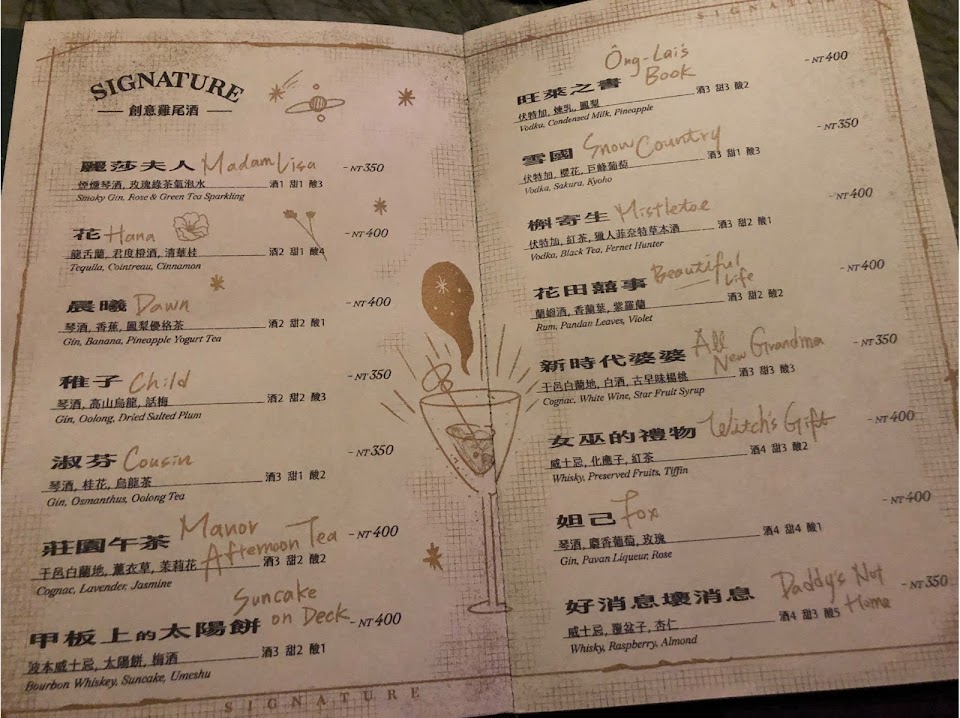 SIGNATURE
創意雞尾酒
麗莎夫人 Madam Lisa - NT 350
煙燻琴酒, 玫瑰綠茶氣泡水 酒1 甜1 酸3
Smoky Gin, Rose & Green Tea Sparkling
花 Hana - NT 400
龍舌蘭, 君度橙酒, 清華桂 酒2 甜1 酸4
Tequila, Cointreau, Cinnamon
晨曦 Dawn - NT 400
琴酒, 香蕉, 鳳梨優格茶 酒2 甜2 酸1
Gin, Banana, Pineapple Yogurt Tea
稚子 Child - NT 350
琴酒, 高山烏龍, 話梅 酒2 甜2 酸3
Gin, Oolong, Dried Salted Plum
淑芬 Cousin - NT 350
琴酒, 桂花, 烏龍茶 酒2 甜1 酸2
Gin, Osmanthus, Oolong Tea
莊園午茶 Manor Afternoon Tea - NT 400
干邑白蘭地, 薰衣草, 茉莉花 酒3 甜2 酸2
Cognac, Lavender, Jasmine
甲板上的太陽餅 Suncake on Deck - NT 400
波本威士忌, 太陽餅, 梅酒 酒3 甜2 酸1
Bourbon Whiskey, Suncake, Umeshu
SIGNATURE
SIGNATURE
旺萊之書 Ông-Lai's Book - NT 400
伏特加, 煉乳, 鳳梨 酒3 甜3 酸2
Vodka, Condensed Milk, Pineapple
雪國 Snow Country - NT 350
伏特加, 櫻花, 巨峰葡萄 酒3 甜1 酸3
Vodka, Sakura, Kyoho
槲寄生 Mistletoe - NT 400
伏特加, 紅茶, 獵人菲奈特草本酒 酒3 甜2 酸1
Vodka, Black Tea, Fernet Hunter
花田囍事 Beautiful Life - NT 400
蘭姆酒, 香蘭葉, 紫羅蘭 酒3 甜2 酸2
Rum, Pandan Leaves, Violet
新時代婆婆 All New Grandma - NT 350
干邑白蘭地, 白酒, 古早味楊桃 酒3 甜3 酸3
Cognac, White Wine, Star Fruit Syrup
女巫的禮物 Witch's Gift - NT 400
威士忌, 化應子, 紅茶 酒4 甜3 酸2
Whisky, Preserved Fruits, Tiffin
妲己 Fox - NT 400
琴酒, 麝香葡萄, 玫瑰 酒4 甜4 酸1
Gin, Pavan Liqueur, Rose
好消息壞消息 Daddy's Not Home - NT 350
威士忌, 覆盆子, 杏仁 酒4 甜3 酸5
Whisky, Raspberry, Almond